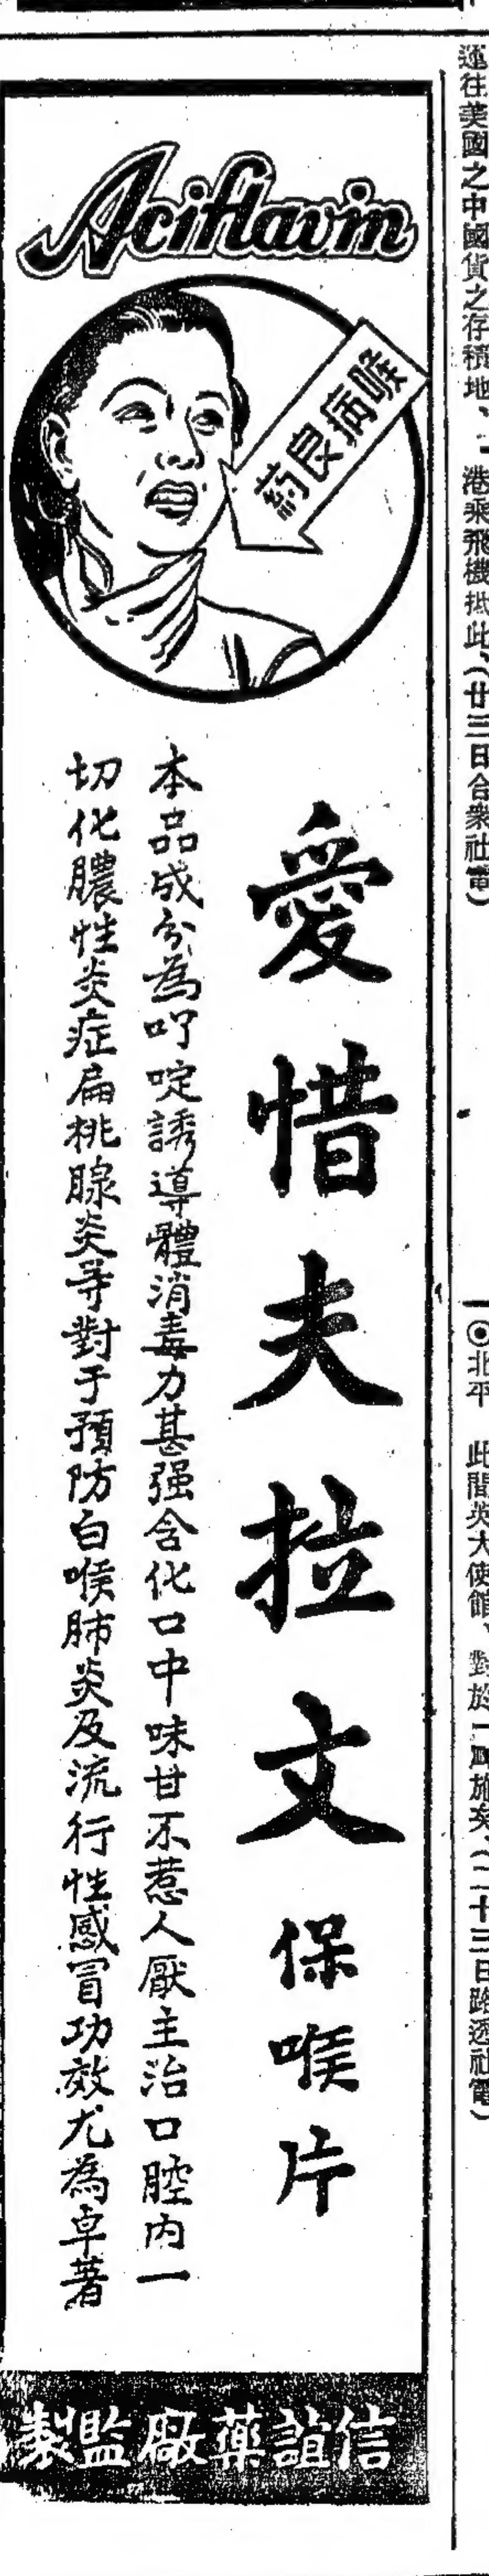 運往美國之中國貨之存積地、
港乘飛機抵此、（廿三日合衆社電）
◉北平　此間英大使館、對於
施矣、（二十三日路透社電）
Aciflavin
喉病良藥
愛惜夫拉文保喉片
本品成分為吖啶誘導體消毒力甚强含化口中味甘不惹人厭主治口腔内一
切化膿性炎症扁桃腺炎等對于預防白喉肺炎及流行性感冒功效尤為卓著
信誼藥廠監製